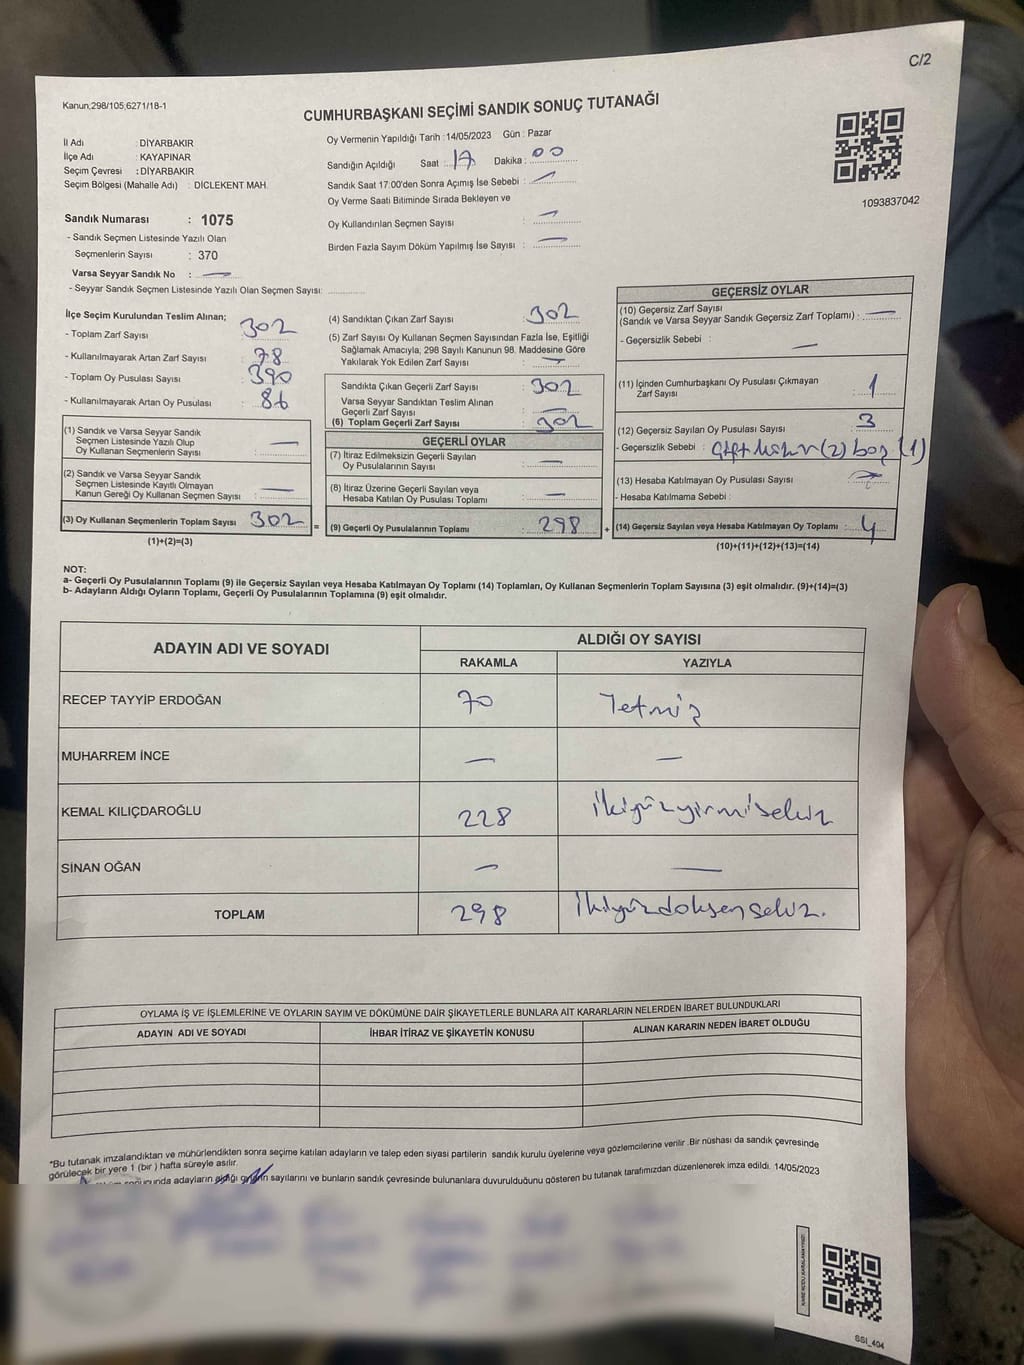 C/2
Kanun;298/105,6271/18-1
CUMHURBAŞKANI SEÇİMİ SANDIK SONUÇ TUTANAĞI
İl Adı : DİYARBAKIR
İlçe Adı : KAYAPINAR
Seçim Çevresi : DİYARBAKIR
Seçim Bölgesi (Mahalle Adı) : DİCLEKENT MAH.
Oy Vermenin Yapıldığı Tarih :14/05/2023 Gün : Pazar
Sandığın Açıldığı Saat : 17 Dakika : 00
Sandık Saat 17:00'den Sonra Açımış İse Sebebi : —
Oy Verme Saati Bitiminde Sırada Bekleyen ve
Oy Kullandırılan Seçmen Sayısı : —
Birden Fazla Sayım Döküm Yapılmış İse Sayısı : —
1093837042
Sandık Numarası : 1075
- Sandık Seçmen Listesinde Yazılı Olan
Seçmenlerin Sayısı : 370
Varsa Seyyar Sandık No : —
- Seyyar Sandık Seçmen Listesinde Yazılı Olan Seçmen Sayısı:
İlçe Seçim Kurulundan Teslim Alınan;
- Toplam Zarf Sayısı : 302
- Kullanılmayarak Artan Zarf Sayısı : 78
- Toplam Oy Pusulası Sayısı : 390
- Kullanılmayarak Artan Oy Pusulası : 86
(1) Sandık ve Varsa Seyyar Sandık
Seçmen Listesinde Yazılı Olup
Oy Kullanan Seçmenlerin Sayısı : —
(2) Sandık ve Varsa Seyyar Sandık
Seçmen Listesinde Kayıtlı Olmayan
Kanun Gereği Oy Kullanan Seçmen Sayısı : —
(3) Oy Kullanan Seçmenlerin Toplam Sayısı : 302 =
(1)+(2)=(3)
(4) Sandıktan Çıkan Zarf Sayısı : 302
(5) Zarf Sayısı Oy Kullanan Seçmen Sayısından Fazla İse, Eşitliği
Sağlamak Amacıyla, 298 Sayılı Kanunun 98. Maddesine Göre
Yakılarak Yok Edilen Zarf Sayısı : —
Sandıkta Çıkan Geçerli Zarf Sayısı : 302
Varsa Seyyar Sandıktan Teslim Alınan
Geçerli Zarf Sayısı : —
(6) Toplam Geçerli Zarf Sayısı : 302
GEÇERLİ OYLAR
(7) İtiraz Edilmeksizin Geçerli Sayılan
Oy Pusulalarının Sayısı : —
(8) İtiraz Üzerine Geçerli Sayılan veya
Hesaba Katılan Oy Pusulası Toplamı : —
(9) Geçerli Oy Pusulalarının Toplamı : 298 +
GEÇERSİZ OYLAR
(10) Geçersiz Zarf Sayısı
(Sandık ve Varsa Seyyar Sandık Geçersiz Zarf Toplamı) : —
- Geçersizlik Sebebi : —
(11) İçinden Cumhurbaşkanı Oy Pusulası Çıkmayan
Zarf Sayısı : 1
(12) Geçersiz Sayılan Oy Pusulası Sayısı : 3
- Geçersizlik Sebebi : Çift Mühür (2) boş (1)
(13) Hesaba Katılmayan Oy Pusulası Sayısı :
- Hesaba Katılmama Sebebi :
(14) Geçersiz Sayılan veya Hesaba Katılmayan Oy Toplamı : 4
(10)+(11)+(12)+(13)=(14)
NOT:
a- Geçerli Oy Pusulalarının Toplamı (9) ile Geçersiz Sayılan veya Hesaba Katılmayan Oy Toplamı (14) Toplamları, Oy Kullanan Seçmenlerin Toplam Sayısına (3) eşit olmalıdır. (9)+(14)=(3)
b- Adayların Aldığı Oyların Toplamı, Geçerli Oy Pusulalarının Toplamına (9) eşit olmalıdır.
ADAYIN ADI VE SOYADI ALDIĞI OY SAYISI
RAKAMLA YAZIYLA
RECEP TAYYİP ERDOĞAN 70 Yetmiş
MUHARREM İNCE — —
KEMAL KILIÇDAROĞLU 228 İkiyüzyirmisekiz
SİNAN OĞAN — —
TOPLAM 298 İkiyüzdoksansekiz.
OYLAMA İŞ VE İŞLEMLERİNE VE OYLARIN SAYIM VE DÖKÜMÜNE DAİR ŞİKAYETLERLE BUNLARA AİT KARARLARIN NELERDEN İBARET BULUNDUKLARI
ADAYIN ADI VE SOYADI İHBAR İTİRAZ VE ŞİKAYETİN KONUSU ALINAN KARARIN NEDEN İBARET OLDUĞU
*Bu tutanak imzalandıktan ve mühürlendikten sonra seçime katılan adayların ve talep eden siyasi partilerin sandık kurulu üyelerine veya gözlemcilerine verilir .Bir nüshası da sandık çevresinde
görülecek bir yere 1 (bir ) hafta süreyle asılır.
adayların aldığı oyların sayılarını ve bunların sandık çevresinde bulunanlara duvurulduğunu gösteren bu tutanak tarafımızdan düzenlenerek imza edildi. 14/05/2023
KARE KODU KARALAMAYINIZ!
SSI_404